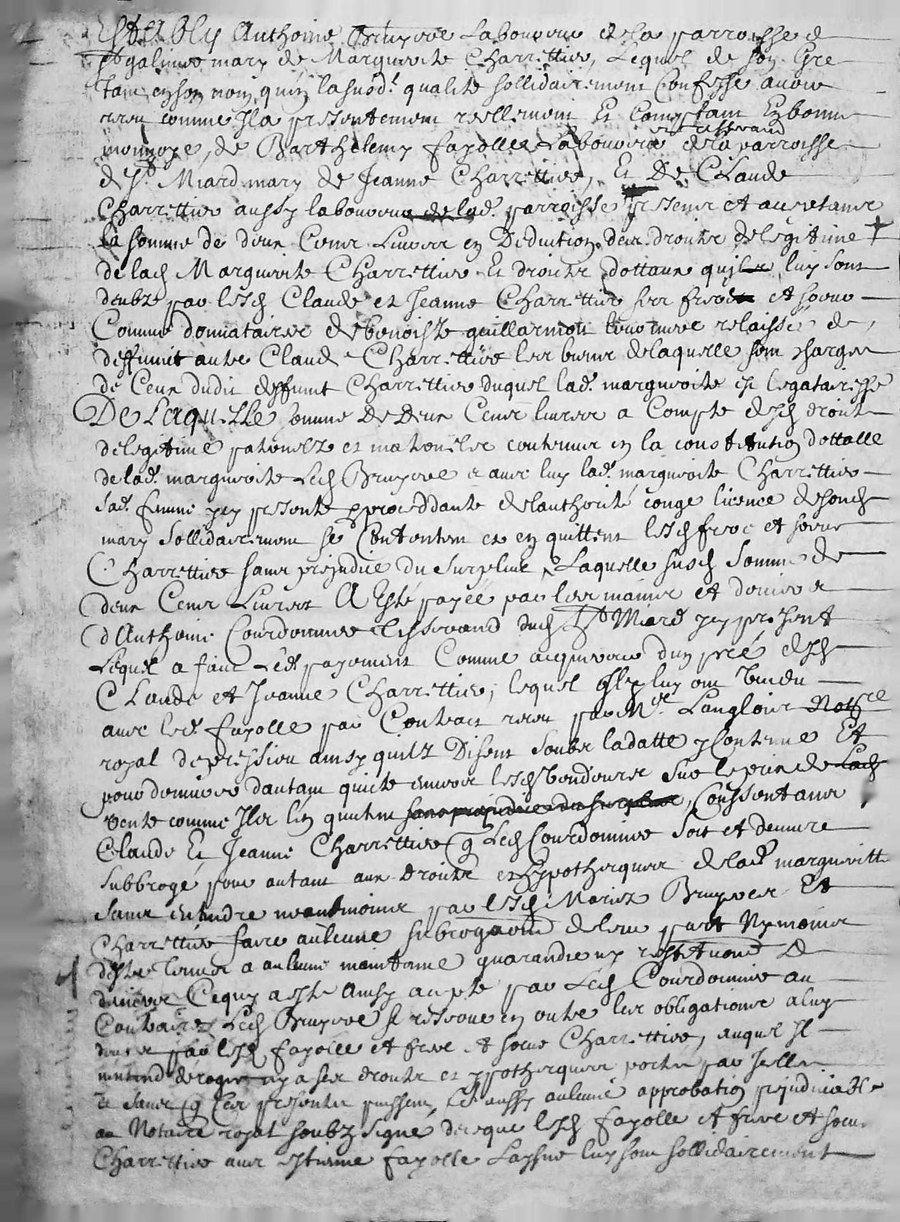 Estably Anthoine Bruyere Laboureur de la parroisse de
St galmier mary de Marguerite Charrettier, Lequel de son gre
tant en son nom quen lasusd. qualite sollidairement Confesse avoir
receu comme Il a presentement reellement Et Comptant En bonne
monnoye, de Barthelemy fayolle Laboureur et tisserand de la parroisse
de St Miard mary de Jeanne Charrettier, Et De Claude
Charrettier aussy laboureur de lad. parroisse present et acceptant
La somme de deux Cens Livres en Deduction des droits de legitime
de lad Marguerite Charrettier Et droits dottaux quil luy sont
deubz par lesd Claude et Jeanne Charrettier ses frere et soeur
Comme donnataires de benoiste guillarmon leur mere relaissee de
deffunct autre Claude Charrettier les biens de laquelle sont charges
de Ceux dudit deffunt Charrettier duquel lad. marguerite est legataresse
De Laquelle somme De deux Cens livres a Compte desd droits
de legitime paternelz et maternelz contenus en la constitution dottalle
de lad. marguerite Led Bruyere et avec luy lad. marguerite Charrettier
sad. femme icy presente proceddante de lauthorité conge licence de sond
mary sollidairement se Contentent et en quittent lesd frere et soeur
Charrettier sans prejudice du surplus, Laquelle susd somme de
deux Cens Livres A Esté payée par les mains et deniers
dAnthoine Courdonnier tisserand dud St Miard icy present
Lequel a fait Led payement Comme acquereur dun pré desd
Claude et Jeanne Charrettier, lequel Ilz luy ont vendu
avec led. fayolle par Contrait receu par Me Langlois Not.re
royal de pression ainsy quilz Disent soubz la datte y Contenue Et
pour demeurer dautant quitte envers lesd vendeurs sur le prix de lad
vente comme Ilz len quittent sans prejudice du surplus, Consentans
Claude Et Jeanne Charrettier q Led Courdonnier soit et demeure
subbrogé pour autant aux droits et hypotheques de lad. marguerite
sans entendre neantmoins par lesd Mariez Bruyere Et
Charrettier faire aulcune subrogation de leur part Ny moins
destre tenus a aulcune maintenue guarandie ny restitution de
deniers Ce quy a esté ainsy accepté par Led Courdonnier au
Contraire Led Bruyere se reserve en outre les obligations a luy
deues par lesd fayolle et frere et soeur Charrettier, auquel Il
nentend deroger ny a ses droits et ypotheques portes par Icelles
et sans q les presentes puissent, Led aussy aulcune approbation prejudiciable
au Notaire royal soubz signe de ce que lesd fayolle et frere et soeur
Charrettier avec Estienne fayolle Laisné luy sont sollidairement